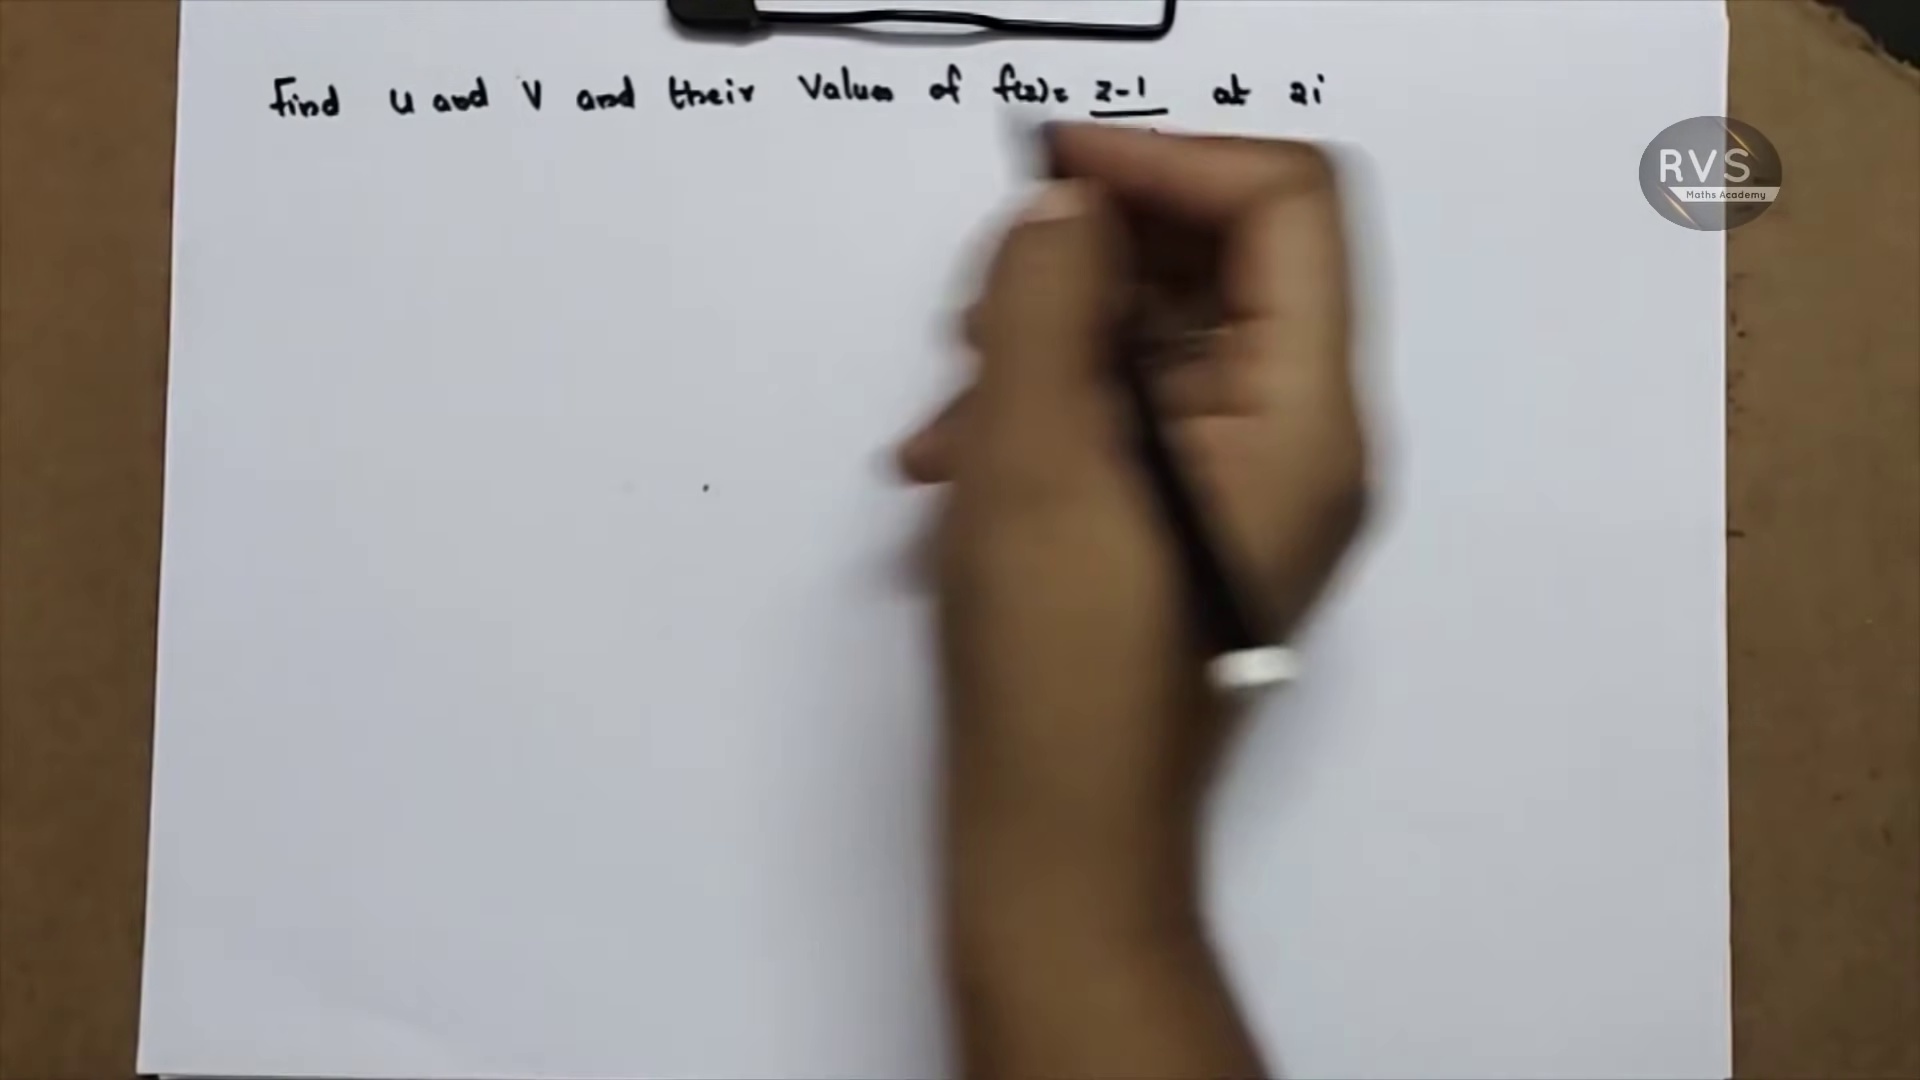 Find u and v and their values of f(z) = z-1 at 2i
RVS
Maths Academy